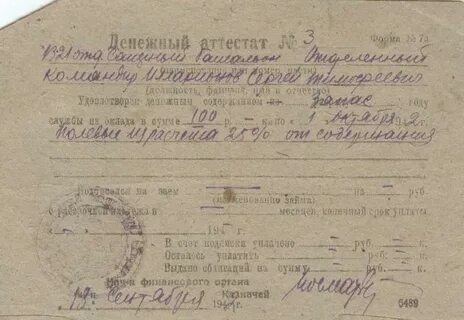 Денежный аттестат № 3 Форма № 7а
1321 отд. Саперный батальон Отделенный
командир Илларионов Сергей Тимофеевич
(должность, фамилия, имя и отчество)
Удовлетворен денежным содержанием по запас году
службы из оклада в сумме 100 р. – к. по „1“ октября 194 2 г.
Полевые из расчета 25% от содержания
Подписался на заем — на — руб.
(наименование займа)
с рассрочкой платежа в — месяцев, конечный срок уплаты
194 г.
В счет подписки уплачено — руб. — к.
Осталось уплатить — руб. — к.
Выдано облигаций на сумму — руб. — к.
Нач-к финансового органа
Казначей
19 Сентября 194 г.
5489